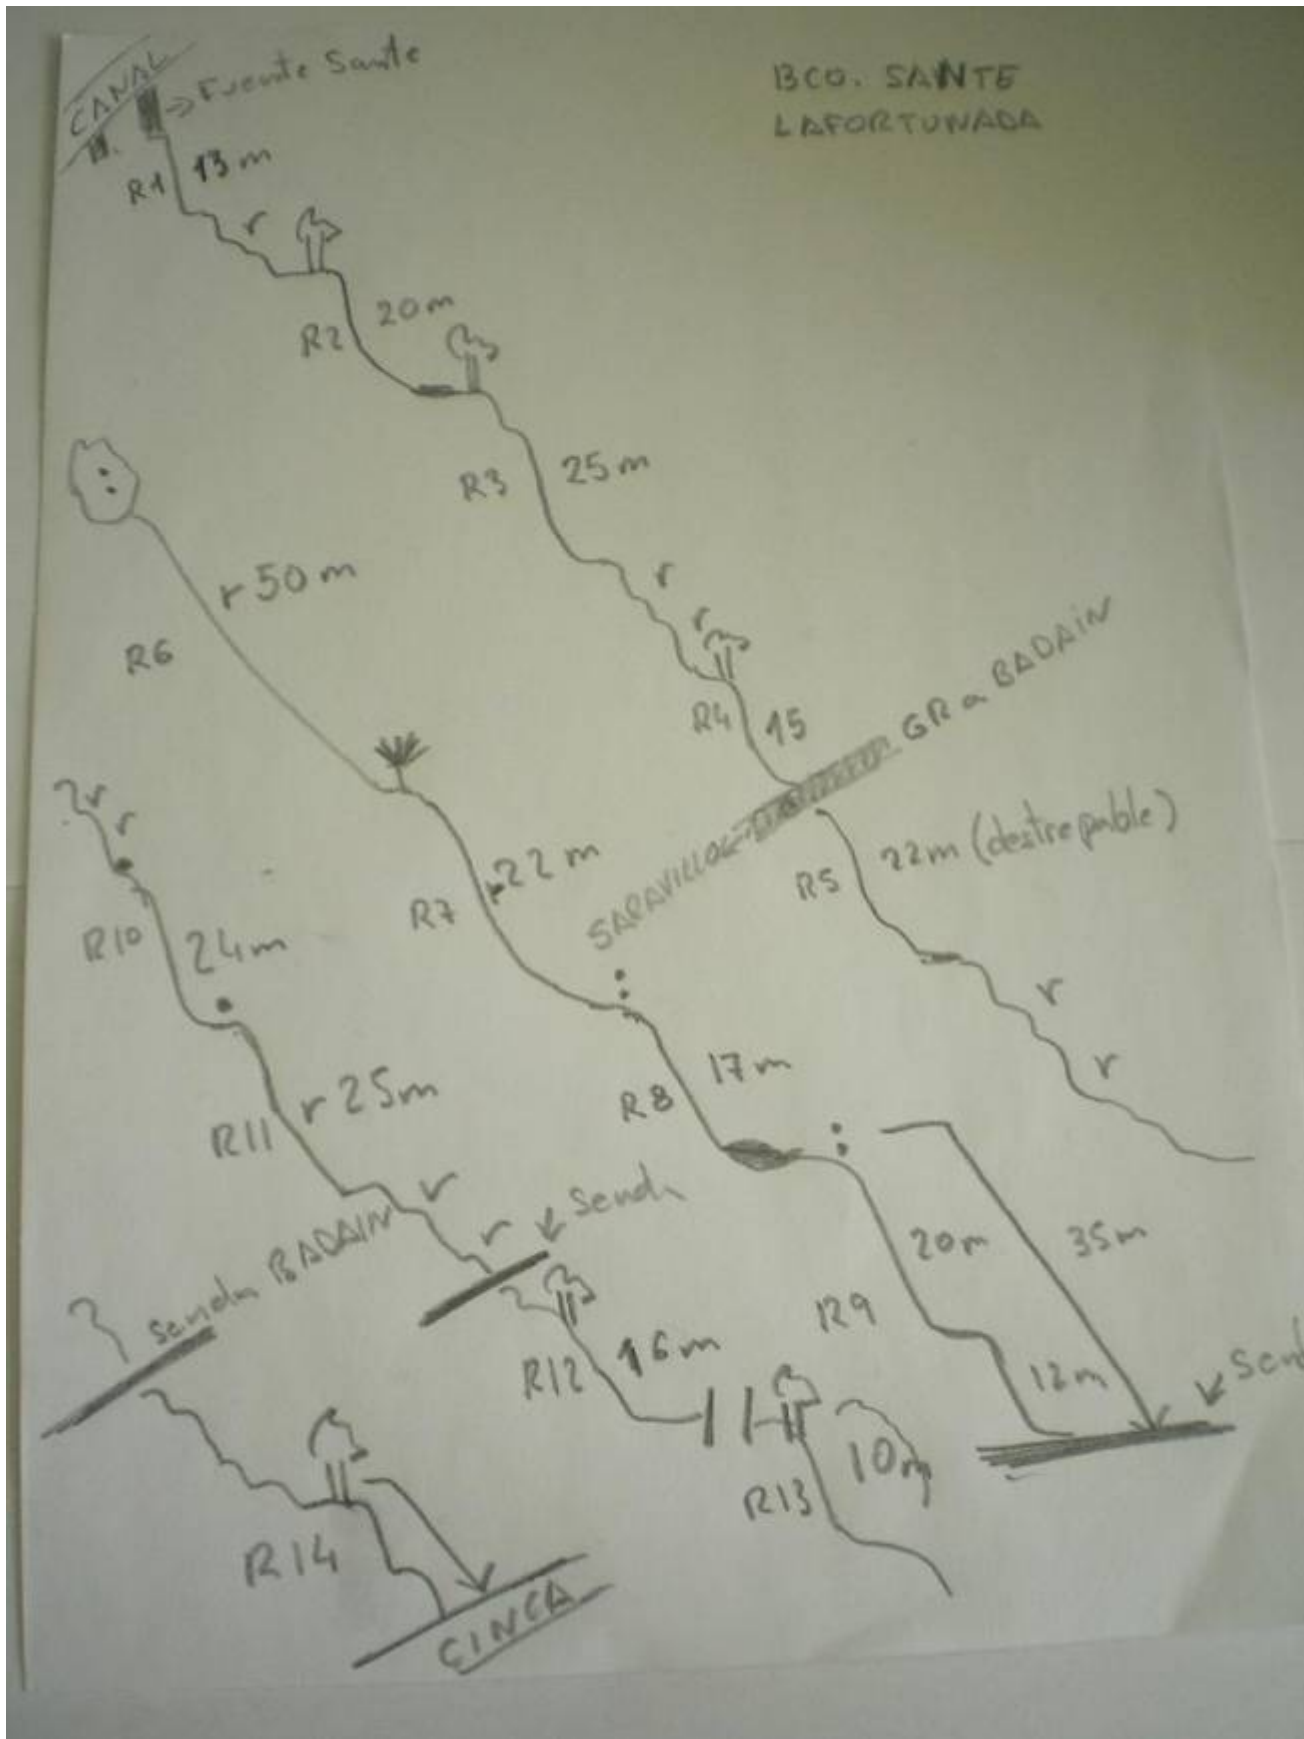 CANAL
Fuente Sante
BCO. SANTE
LAFORTUNADA
R1 13m
r
R2 20m
R3 25m
r
r
R4 15
GR a BADAIN
SARAVILLO
R5 22m (destrepable)
r
r
R6 r 50m
R7 22m
R8 17m
R9 20m 35m
12m
r
r
R10 24m
R11 r 25m
r
r
Senda BADAIN
R12 16m
R13 10m
R14
CINCA